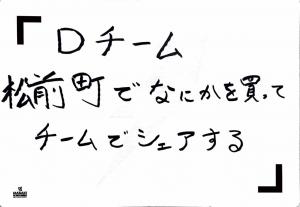 Dチーム
松前町でなにかを買って
チームでシェアする